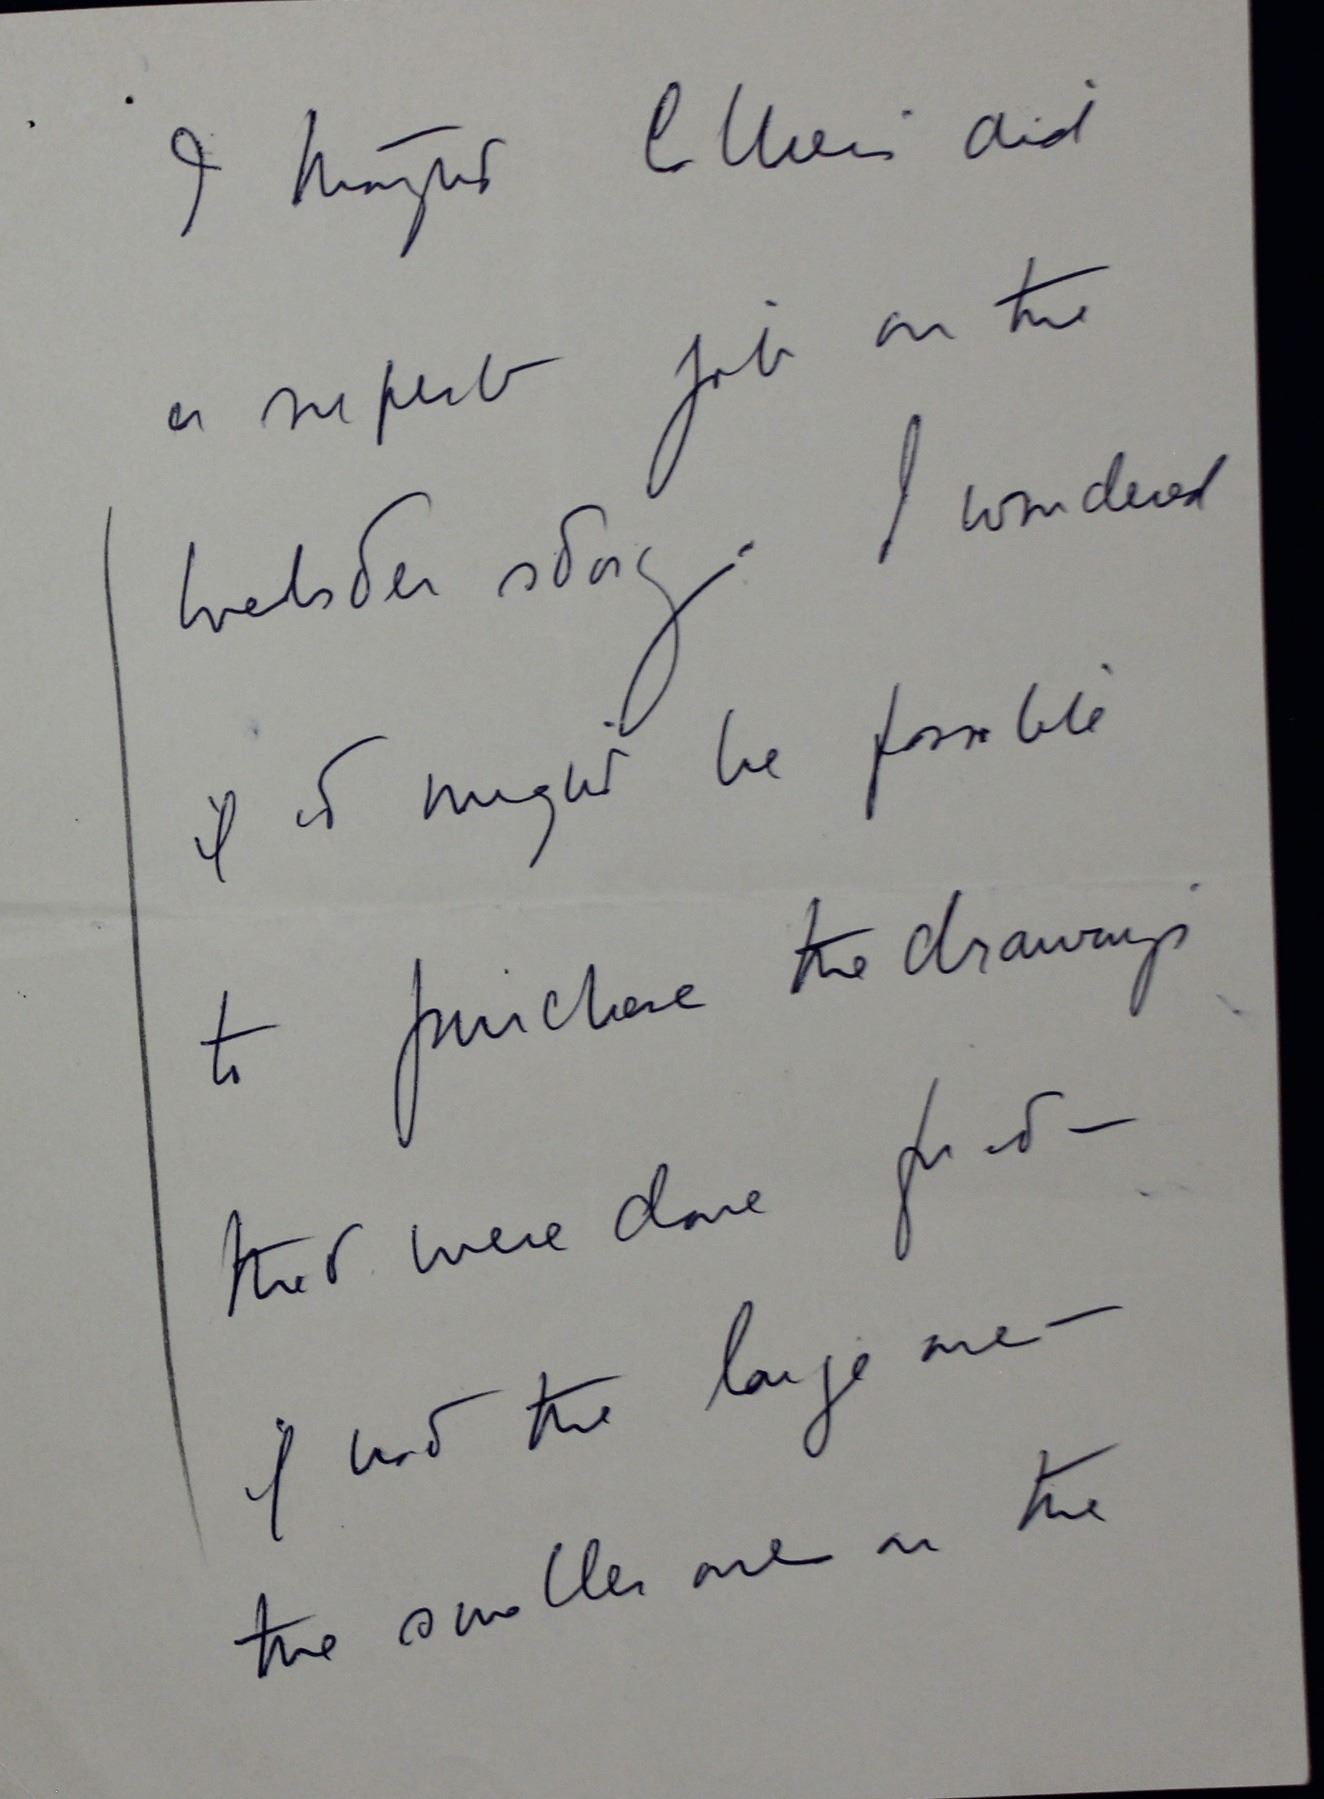 I thought Collier's did
a superb job on the
Webster story. I wondered
if it might be possible
to purchase the drawings
that were done for it —
if not the large one —
the smaller one on the